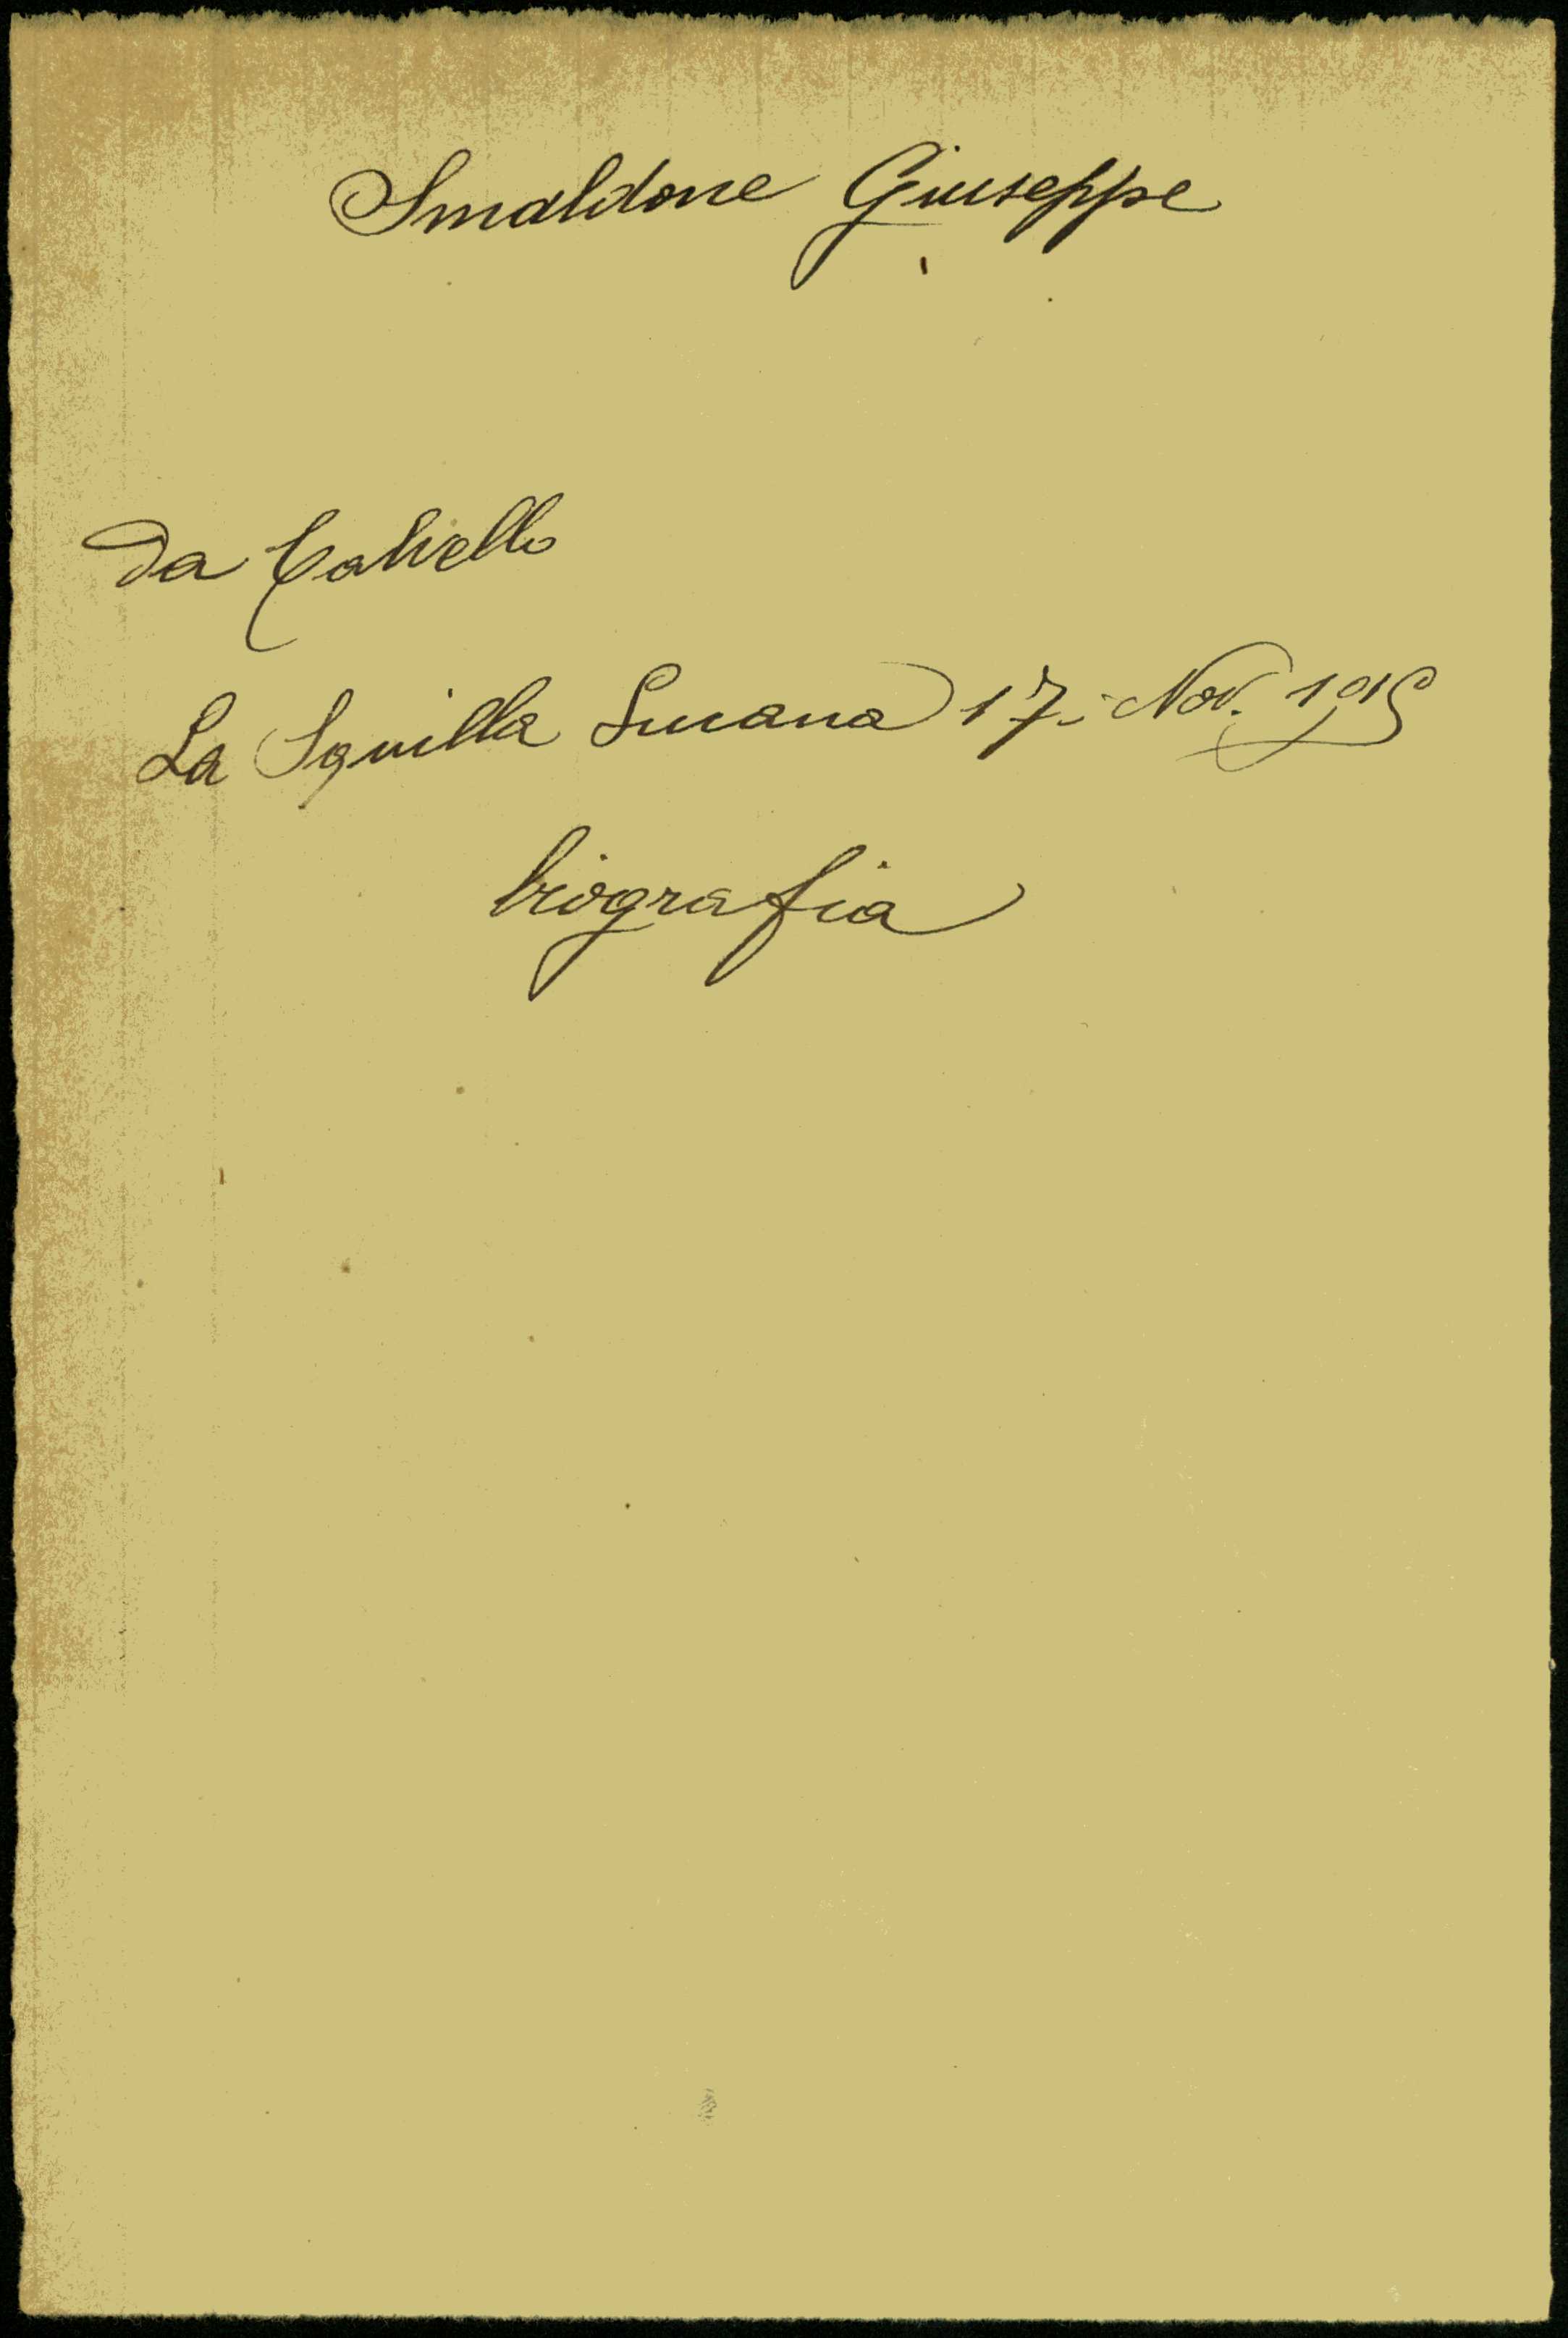 Smaldone Giuseppe
da Calvello
La Squilla Lucana 17 - Nov. 1915
biografia